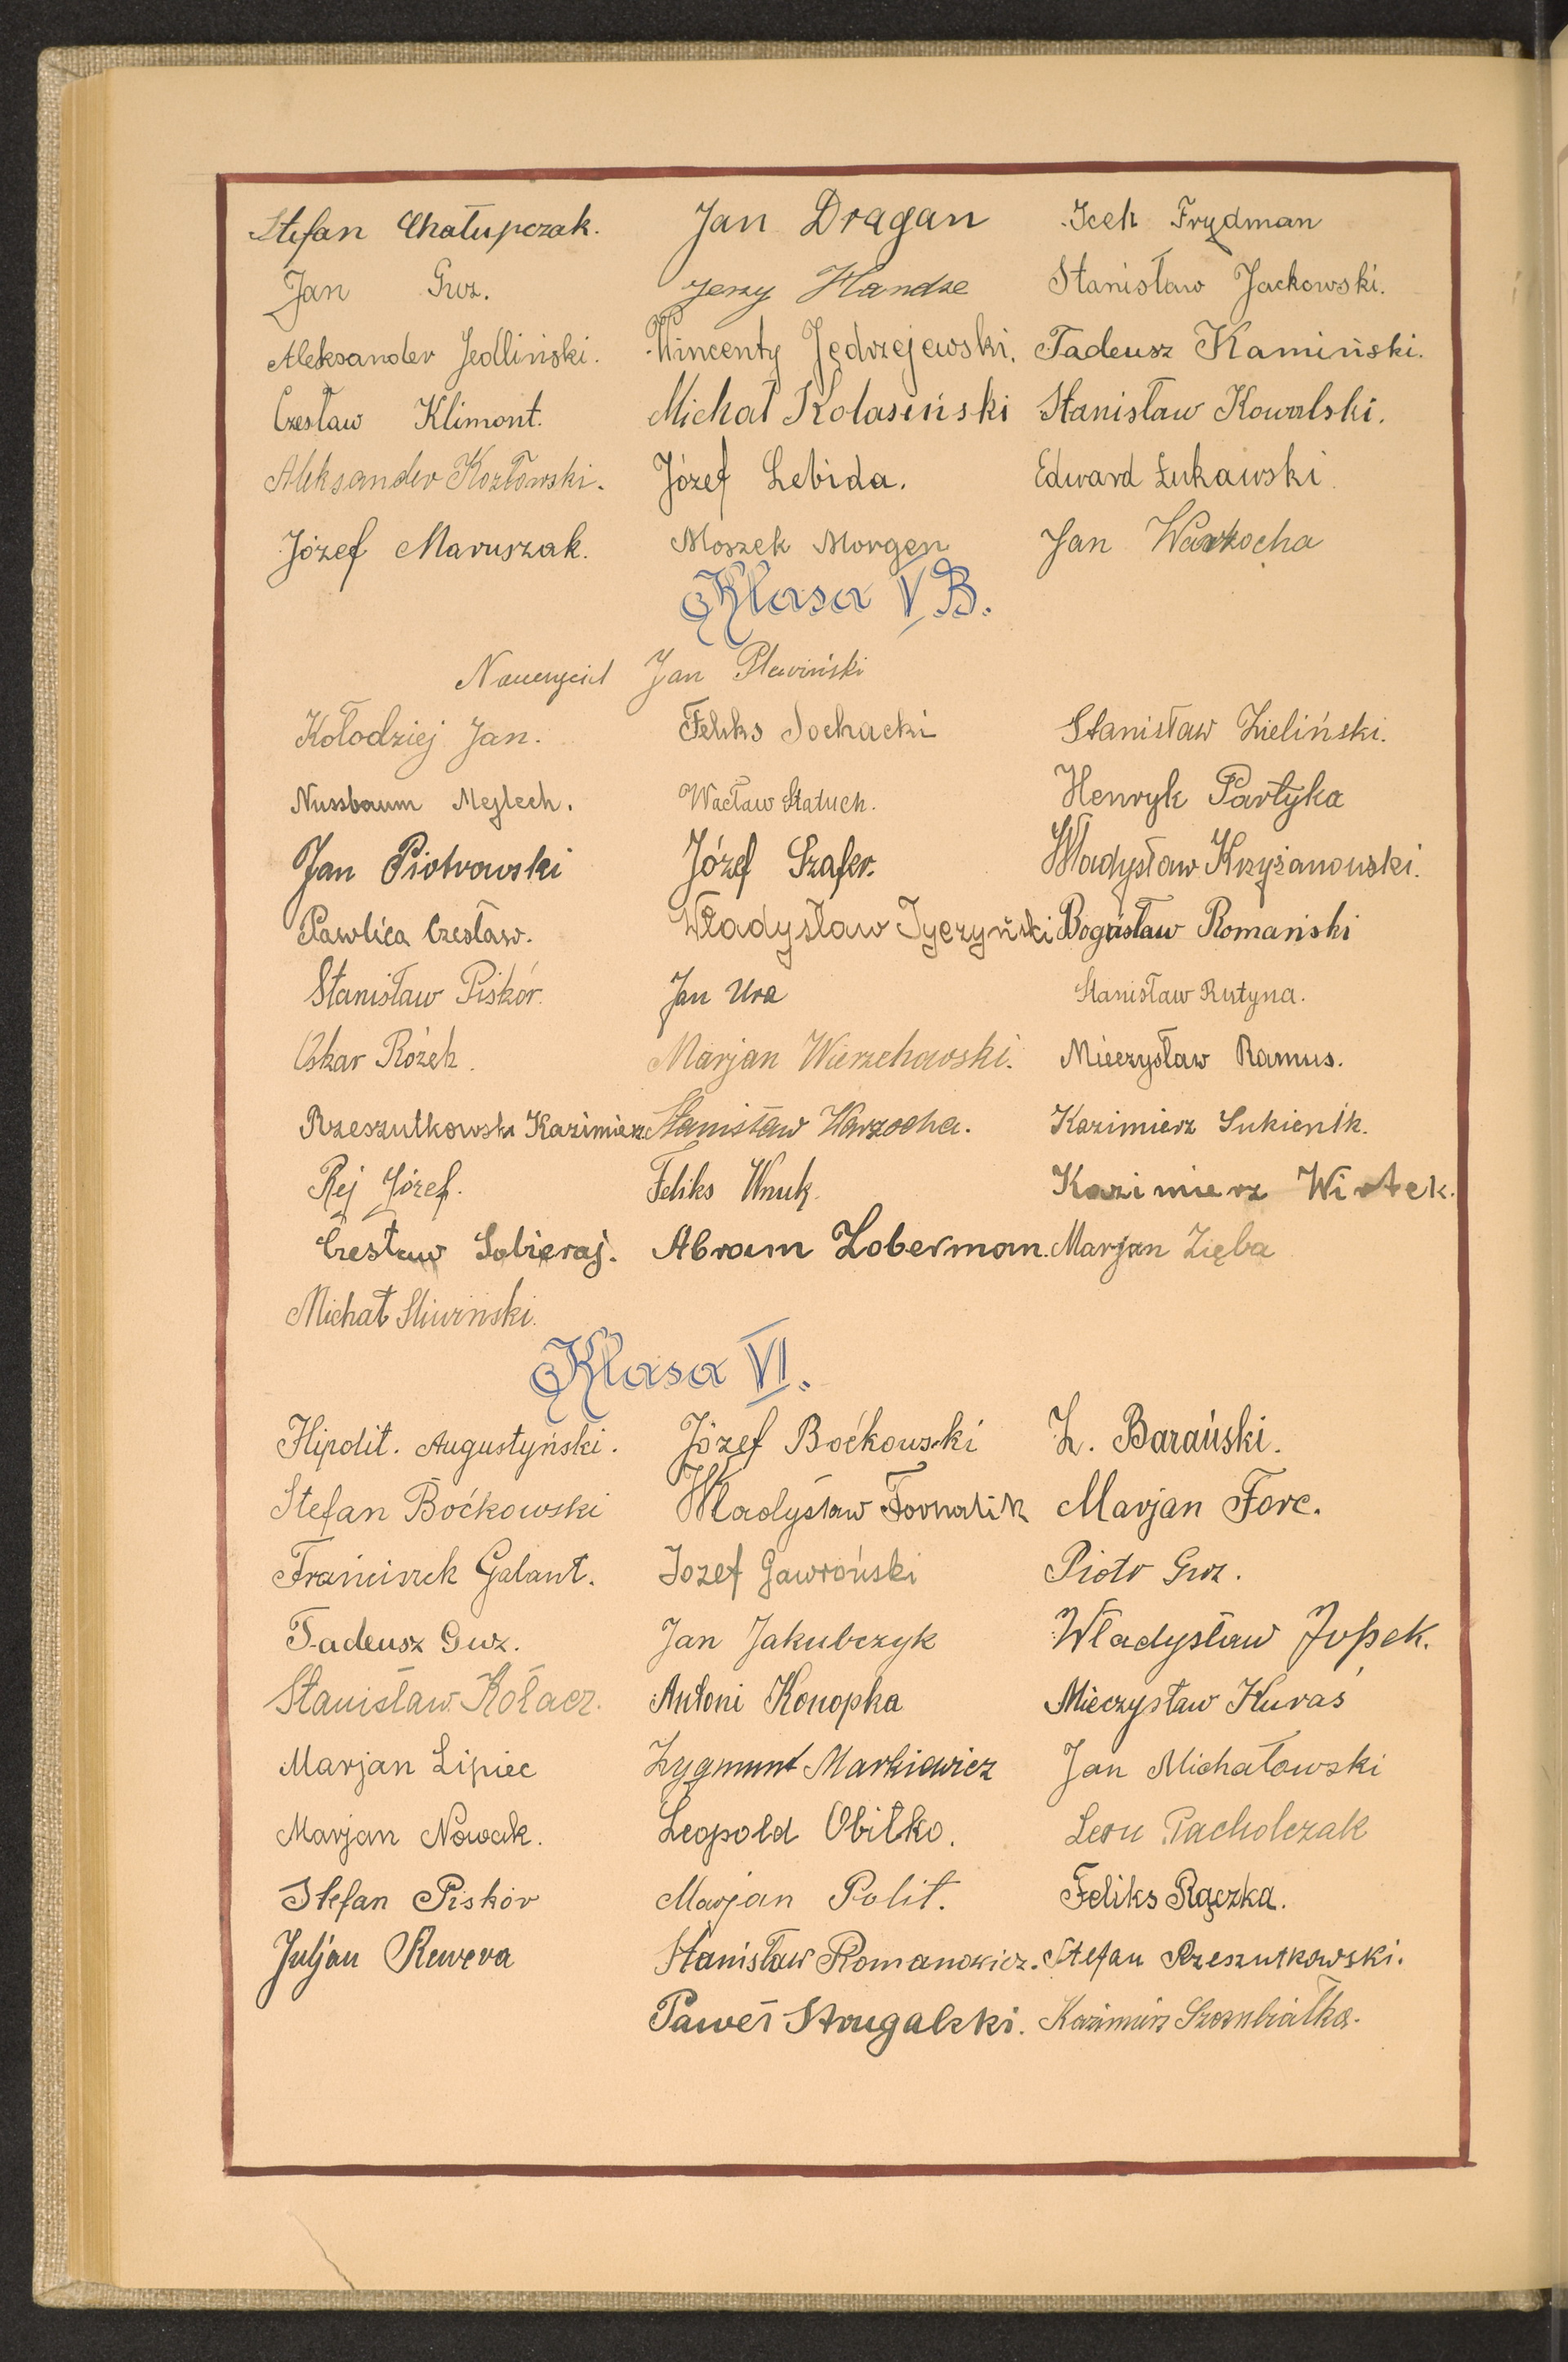 Stefan Chałupczak. Jan Dragan Icek Frydman
Jan Gwz. Jerzy Handze Stanisław Jackowski.
Aleksander Jedliński. Wincenty Jędrzejewski. Tadeusz Kamiński.
Czesław Klimont. Michał Kolasiński Stanisław Kowalski.
Aleksander Kozłowski. Józef Lebida. Edward Łukawski
Józef Maruszak. Moszek Morgen Jan Warzocha
Klasa V B.
Nauczyciel Jan Plewiński
Kołodziej Jan. Feliks Sochacki Stanisław Zieliński.
Nussbaum Mejlech. Wacław Statuch. Henryk Partyka
Jan Piotrowski Józef Szafer. Władysław Krzyżanowski.
Pawlica Czesław. Władysław Tyczyński Bogusław Romański
Stanisław Piskór. Jan Ura Stanisław Rutyna.
Oskar Rożek. Marjan Wierzchowski. Mieczysław Ramus.
Rzeszutkowski Kazimierz Stanisław Warzocha. Kazimierz Sukienik.
Rej Józef. Feliks Wnuk. Kazimierz Wirtek.
Czesław Sobieraj. Abram Loberman. Marjan Zięba
Michał Sliwinski.
Klasa VI.
Hipolit. Augustyński. Józef Boćkowski Z. Barański.
Stefan Boćkowski Władysław Fornalik Marjan Forc.
Franciszek Galant. Jozef Gawroński Piotr Gwz.
Tadeusz Gwz. Jan Jakubczyk Władysław Jopek.
Stanisław Kołacz. Antoni Konopka Mieczysław Kuraś
Marjan Lipiec Zygmunt Markiewicz Jan Michałowski
Marjan Nowak. Leopold Obiłko. Leon Pacholczak
Stefan Piskór Marjan Polit. Feliks Rączka.
Juljan Rewera Stanisław Romanowicz. Stefan Rzeszutkowski.
Paweł Strugalski. Kazimierz Szozubiałka.